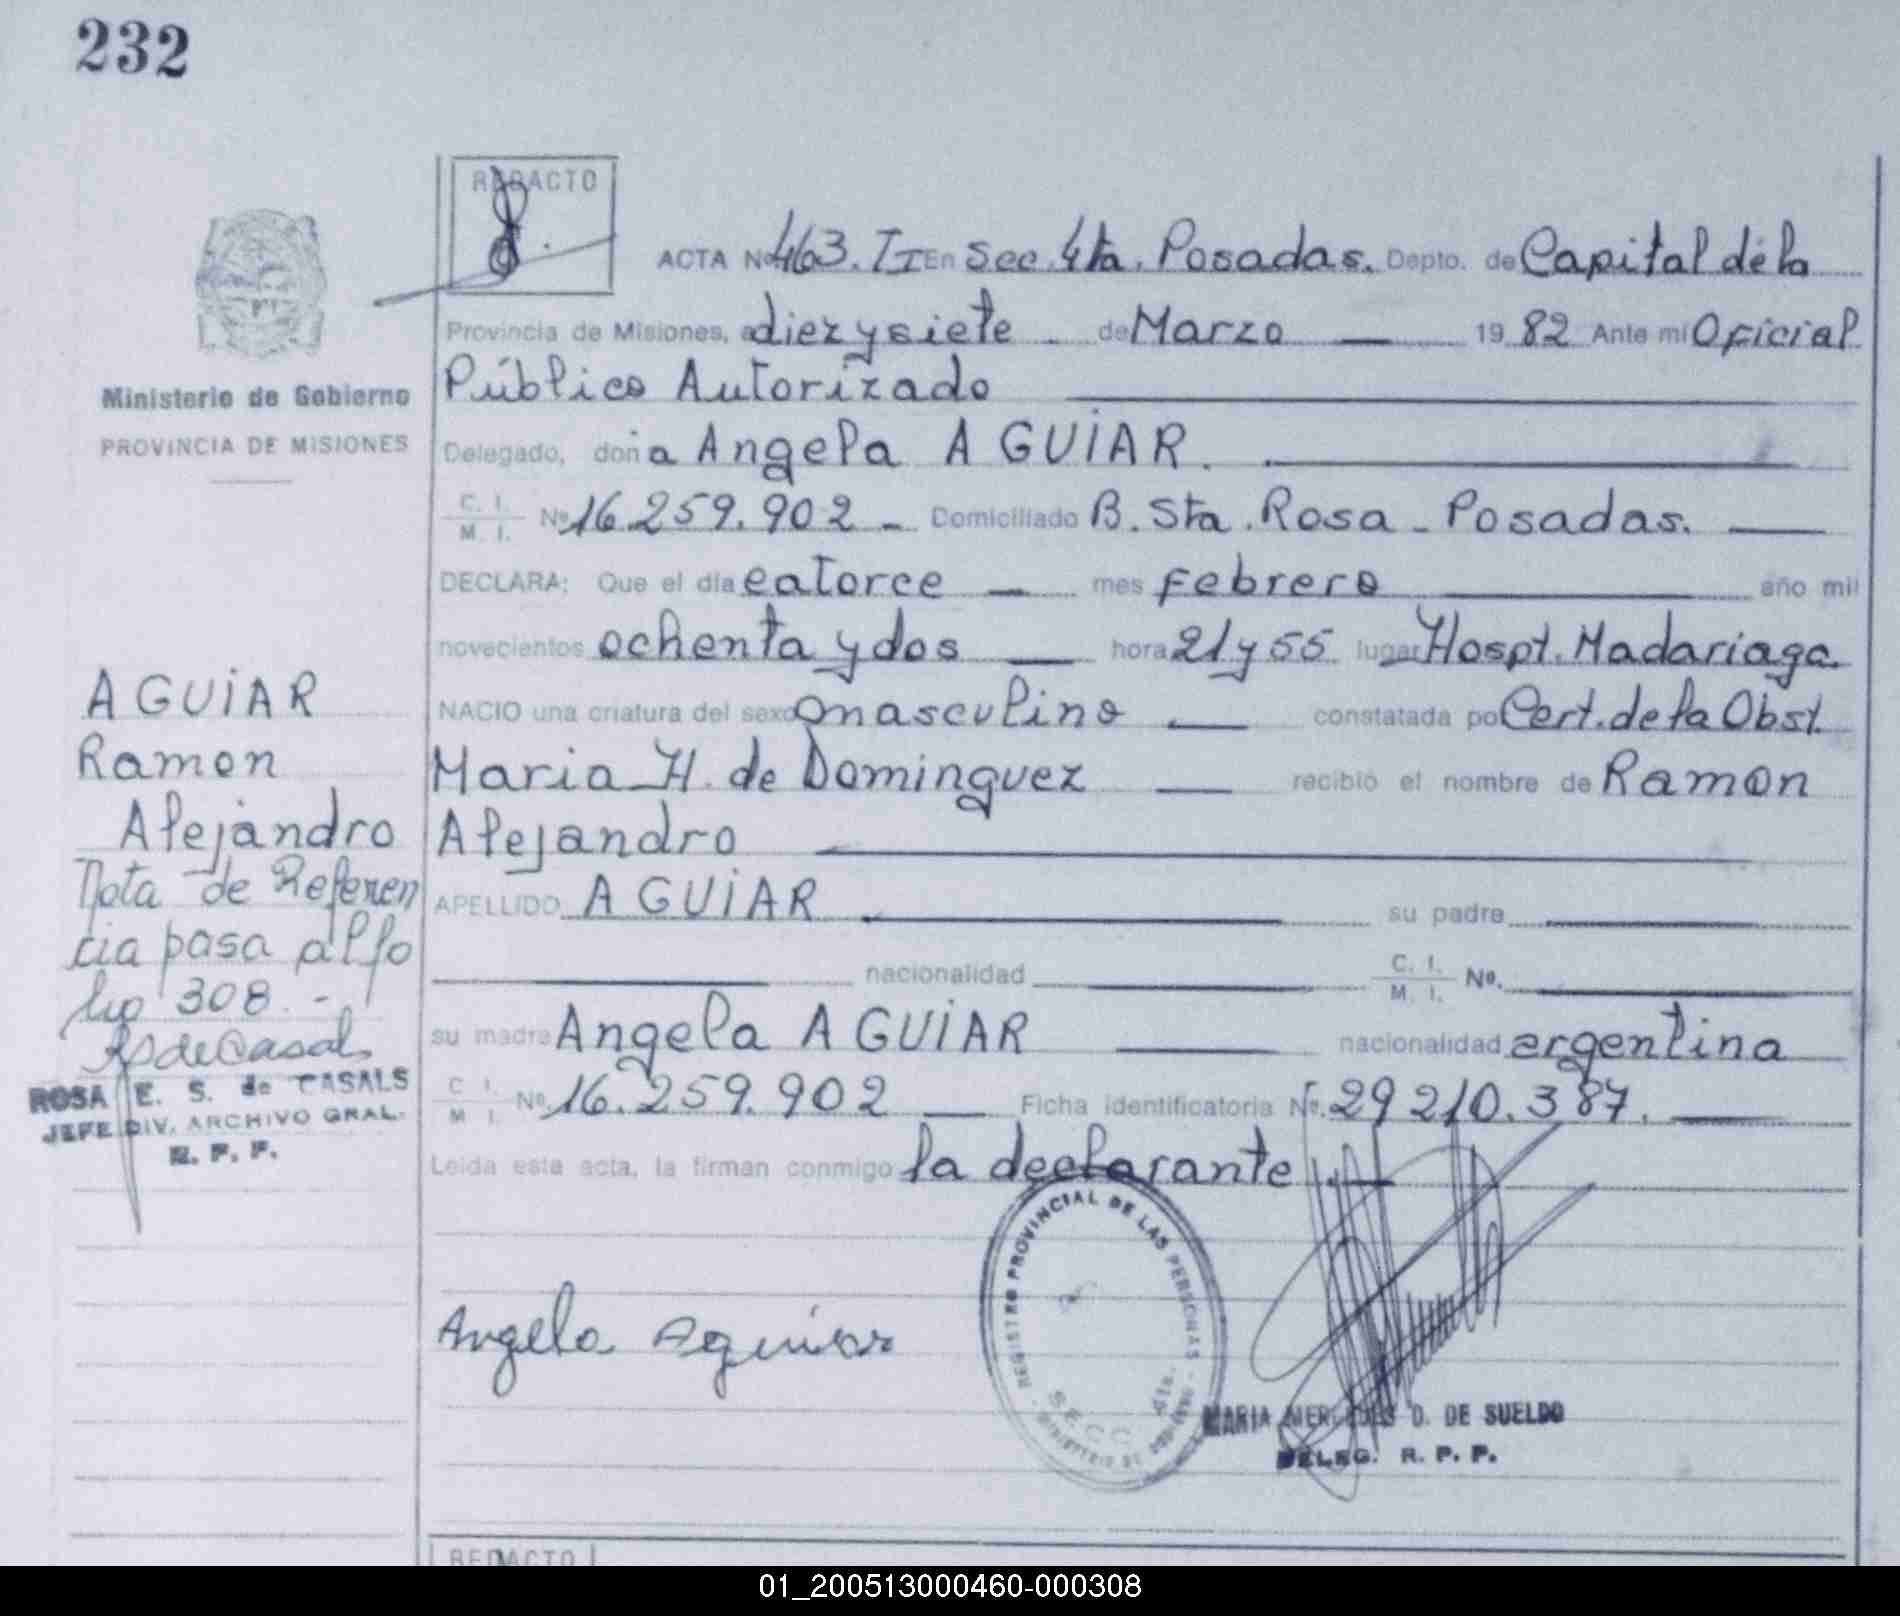 232
REDACTO
ACTA Nº 463. II En Sec. 4ta. Posadas. Depto. de Capital de la
Provincia de Misiones, a diez y siete de Marzo 1982 Ante mi Oficial
Público Autorizado
Delegado, doña Angela AGUIAR.
C. I.
M. I.
Nº 16.259.902 - Domiciliado B. Sta. Rosa - Posadas.
DECLARA: Que el día catorce mes febrero año mil
novecientos ochenta y dos hora 21 y 55 lugar Hospt. Madariaga.
NACIO una criatura del sexo masculino constatada po Cert. de la Obst.
Maria H. de Dominguez recibió el nombre de Ramon
Alejandro
APELLIDO AGUIAR su padre
nacionalidad C. I.
M. I. Nº.
su madre Angela AGUIAR nacionalidad argentina
C. I.
M. I. Nº. 16.259.902 Ficha identificatoria Nº. 29 210.387.
Leída esta acta, la firman conmigo la declarante.
Angela Aguiar
REGISTRO PROVINCIAL DE LAS PERSONAS
MINISTERIO DE GOBIERNO
SECC. 4ta.
MARIA MERCEDES D. DE SUELDO
DELEG. R. P. P.
Ministerio de Gobierno
PROVINCIA DE MISIONES
AGUIAR
Ramon
Alejandro
Nota de Referen
cia pasa al fo
lio 308.-
RSdeCasals
ROSA E. S. de CASALS
JEFE DIV. ARCHIVO GRAL.
R. P. P.
REDACTO
01_200513000460-000308